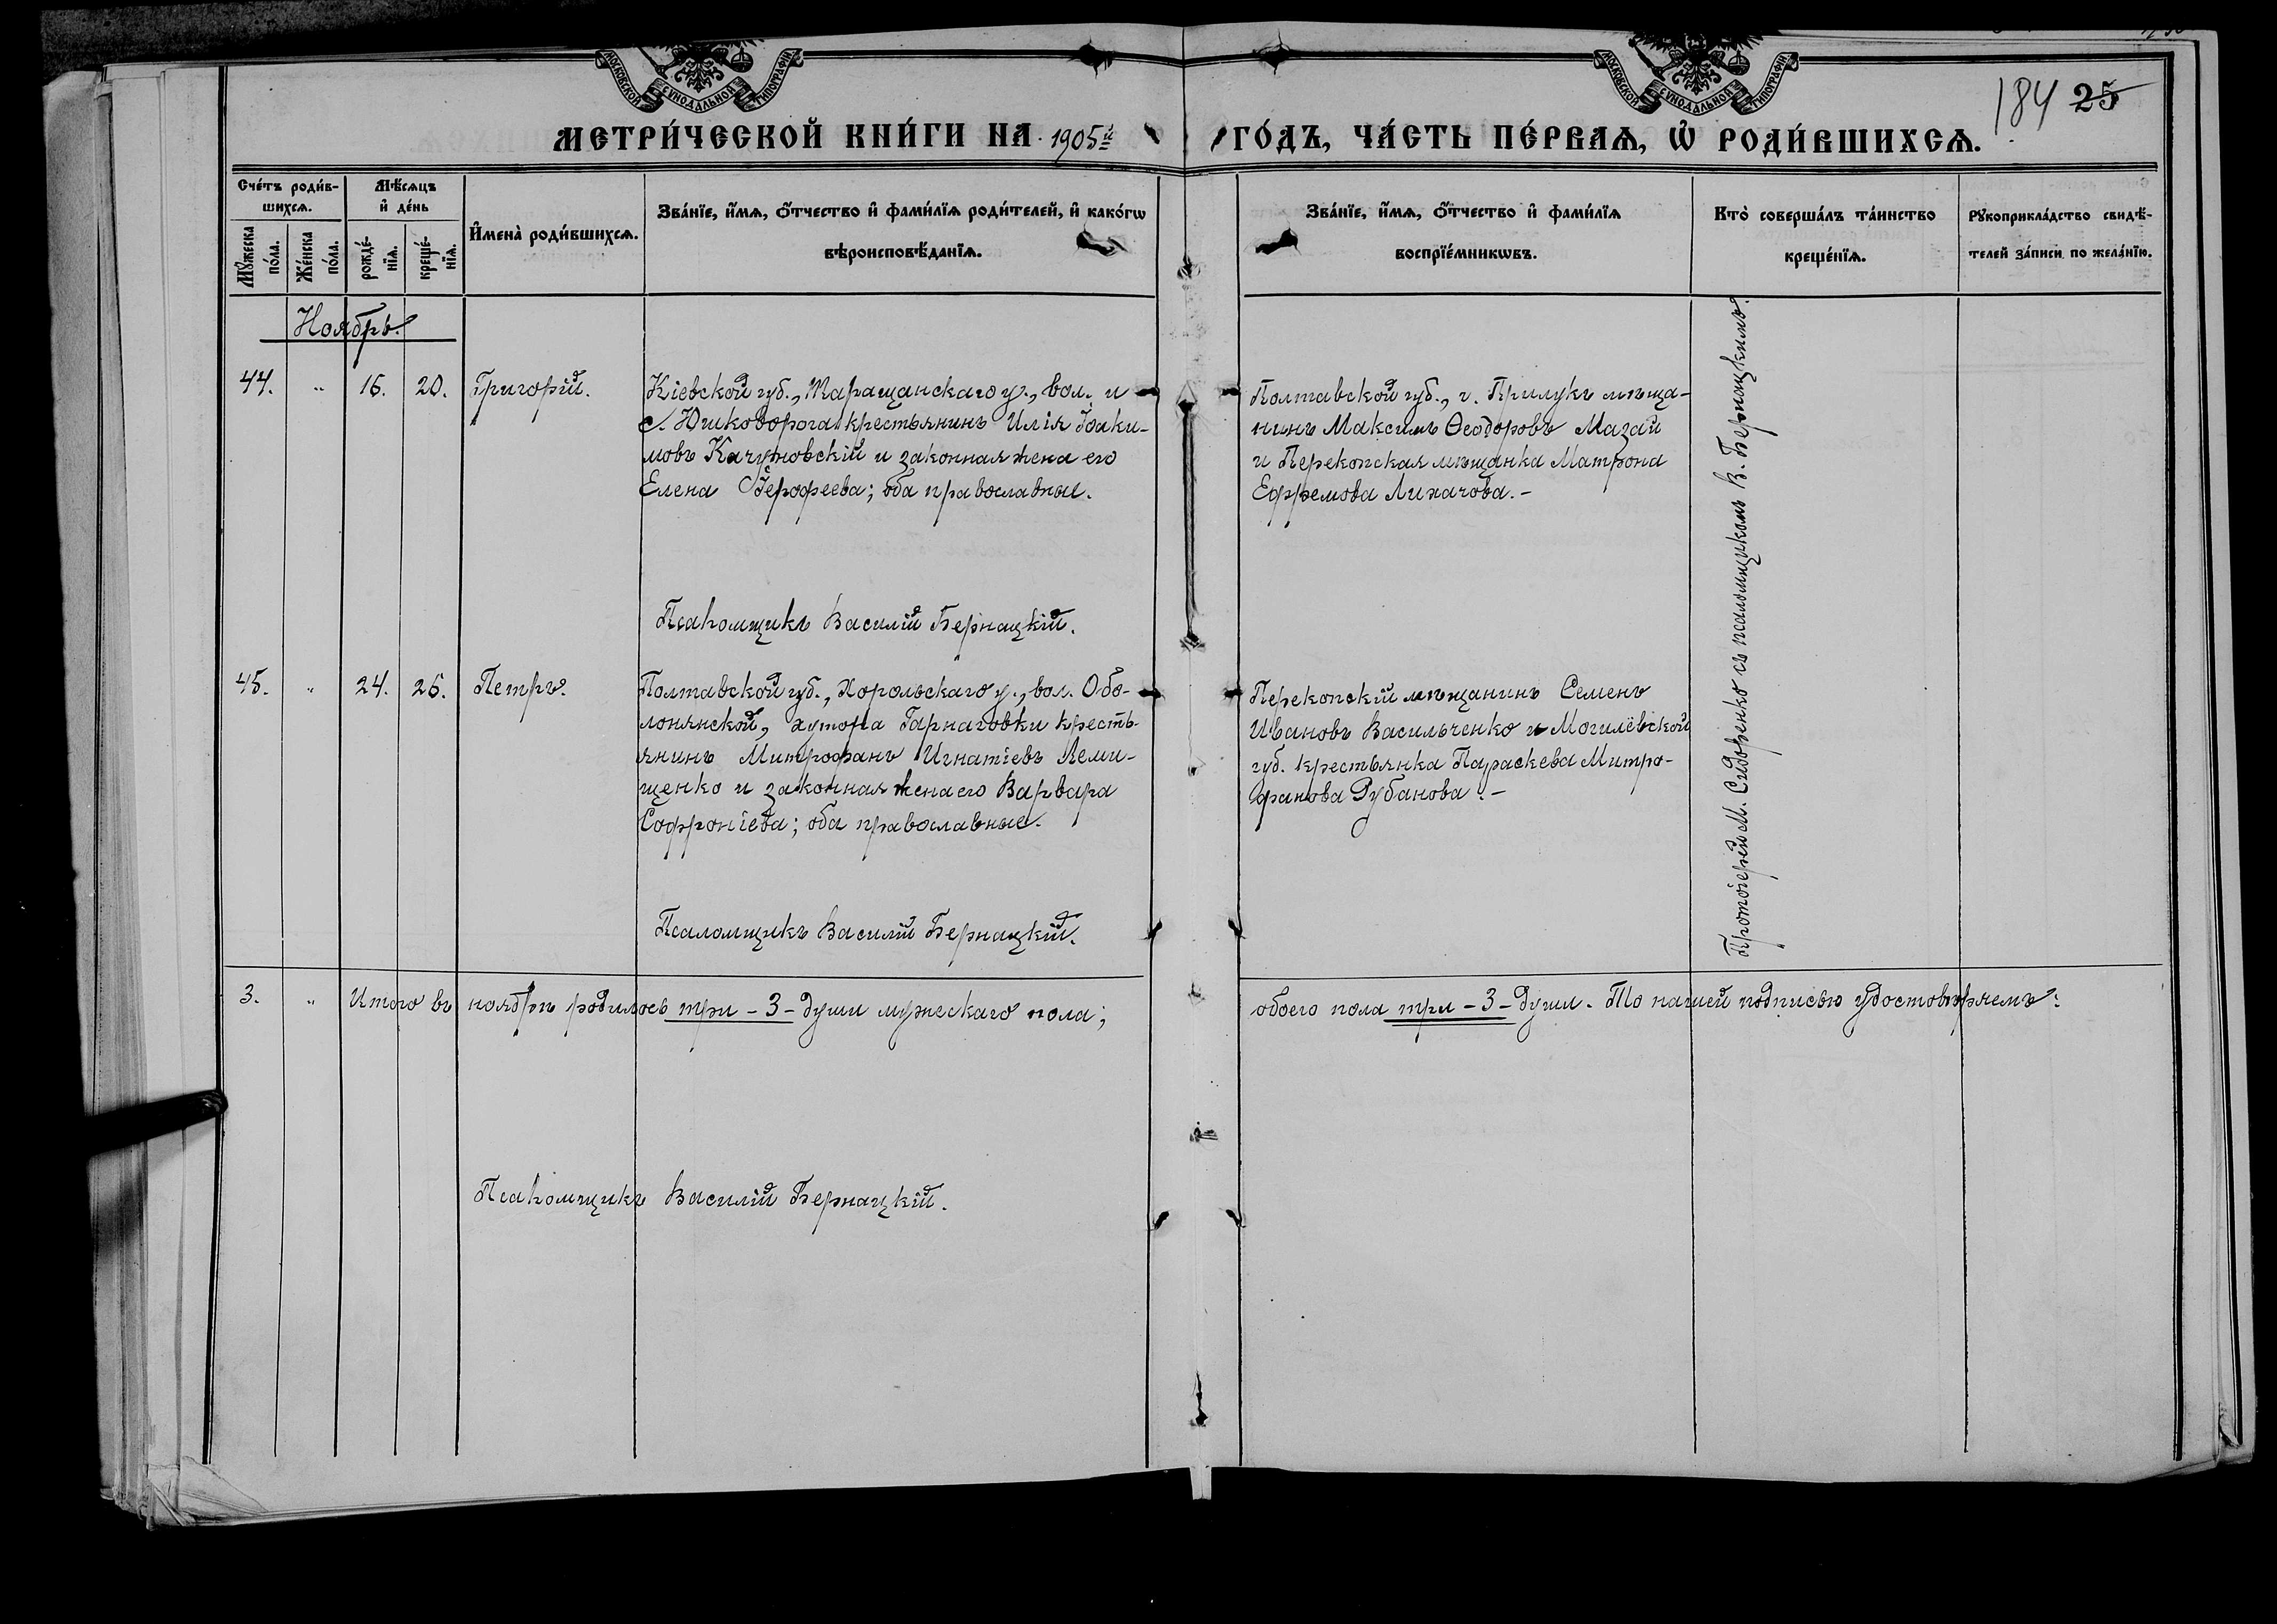 МОСКОВСКОЙ СѴНОДАЛЬНОЙ ТИПОГРАФІИ
МОСКОВСКОЙ СѴНОДАЛЬНОЙ ТИПОГРАФІИ
184 25
МЕТРИ́ЧЕСКОЙ КНИ́ГИ НА 1905й ГО́ДЪ, ЧА́СТЬ ПЕ́РВАѦ, Ѽ РОДИ́ВШИХСѦ.
Сче́тъ роди́в-
шихсѧ.
Мꙋ́жеска
по́ла.
Же́нска
по́ла.
Мѣ́сѧцъ
и҆ де́нь
рожде́-
нїѧ.
креще́-
нїѧ.
И҆мена̀ роди́вшихсѧ.
Зва́нїе, и҆́мѧ, ѻ҆́тчество и҆ фами́лїѧ роди́телей, и҆ како́гѡ
вѣроисповѣ́данїѧ.
Зва́нїе, и҆́мѧ, ѻ҆́тчество и҆ фами́лїѧ
воспрїе́мникѡвъ.
Кто̀ соверша́лъ та́инство
креще́нїѧ.
Рꙋкоприкла́дство свидѣ́-
телей за́писи по жела́нїю.
Ноябрь.
44. „ 16. 20. Григорій.
Кіевской губ., Таращанскаго у., вол. и
с. Юшководрога крестьянинъ Илія Іоаки-
мовъ Качуновскій и законная жена его
Елена Іерофеева; оба православные.
Полтавской губ., г. Прилукъ мѣща-
нинъ Максимъ Ѳеодоровъ Мазай
и Перекопская мѣщанка Матрона
Ефремова Лихачова.-
Протоіерей М. Сидоренко съ псаломщикомъ В. Бернацкимъ.
Псаломщикъ Василій Бернацкій.
45. „ 24. 26. Петръ.
Полтавской губ., Хорольскаго у., вол. Обо-
лонянской, хутора Гарнаговки кресть-
янинъ Митрофанъ Игнатіевъ Леми-
щенко и законная жена его Варвара
Софроніева; оба православные.
Перекопскій мѣщанинъ Семенъ
Ивановъ Васильченко и Могилёвской
губ. крестьянка Параскева Митро-
фанова Рубанова.-
Псаломщикъ Василій Бернацкій.
3. „ Итого въ ноябрѣ родилось три - 3 - души мужескаго пола;
обоего пола три - 3 - души. То нашей подписью удостовѣряемъ:
Псаломщикъ Василій Бернацкій.